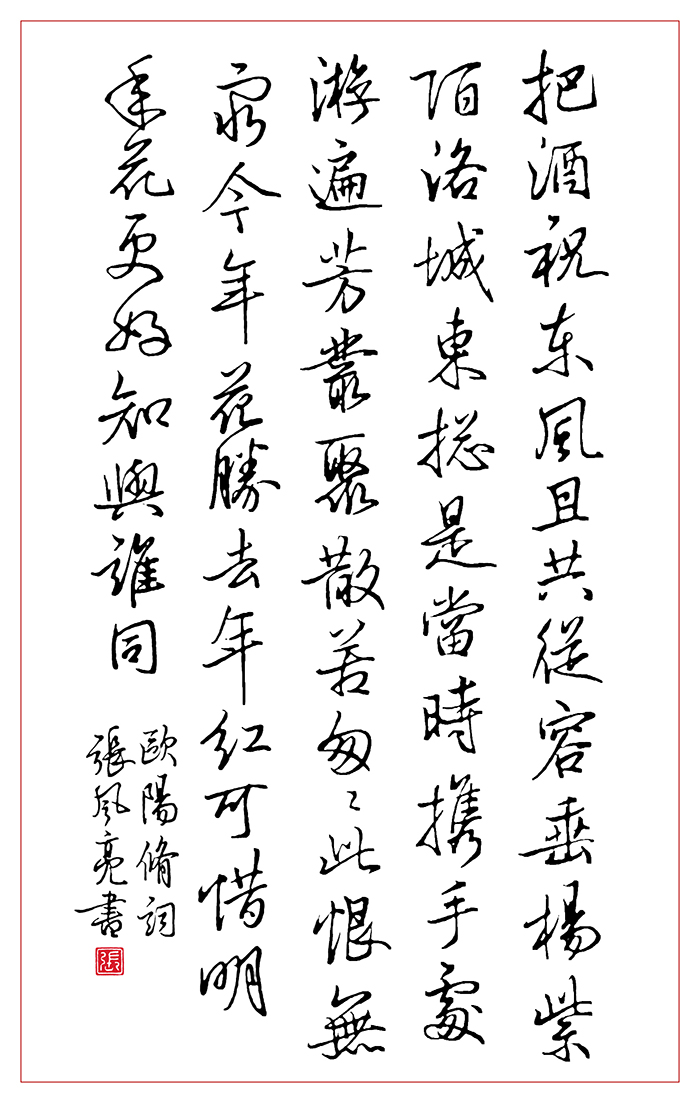 把酒祝东風且共從容垂楊紫
陌洛城東揔是當時携手處
游遍芳叢聚散苦匆〻此恨無
窮今年花勝去年红可惜明
年花更好知與誰同
歐陽脩詞
張風亮書
張